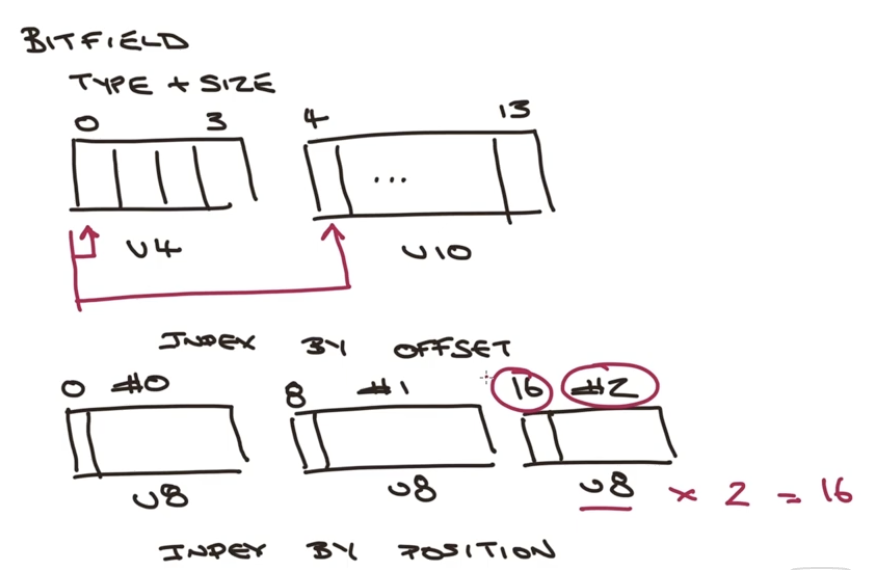 BITFIELD
TYPE + SIZE
0 3 4 13
...
U4 U10
INDEX BY OFFSET
0 #0 8 #1 16 #2
U8 U8 U8 × 2 = 16
INDEX BY POSITION